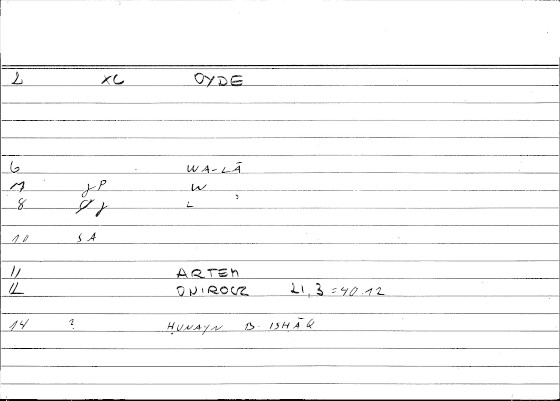 2 XC OYDE
6 WA-LĀ
7 γP W
8 γ L ʾ
10 SA
11 ARTEM
12 ONIROCR II, 3 = 40.12
14 ? ḤUNAYN B. ISḤĀQ